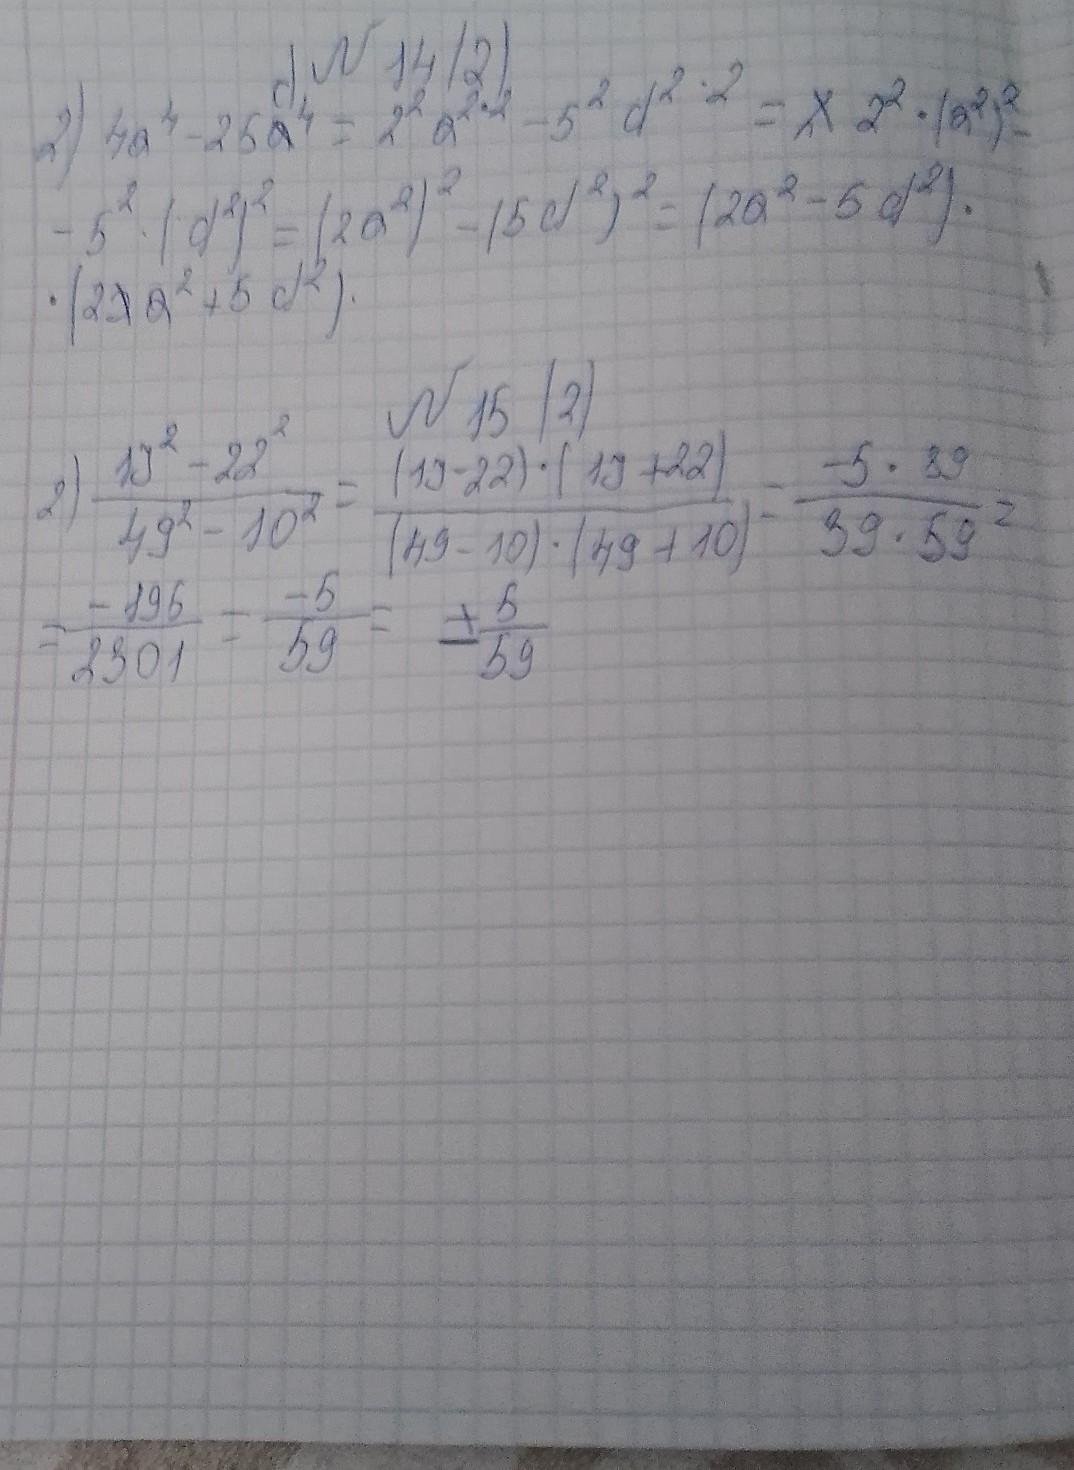 N 14 (2)
2) 4a⁴ - 25d⁴ = 2² a²·² - 5² d²·² = 2² · (a²)² -
- 5² · (d²)² = (2a²)² - (5d²)² = (2a² - 5d²) ·
· (2a² + 5d²).
N 15 (2)
2) \frac{17² - 22²}{49² - 10²} = \frac{(17-22)·(17+22)}{(49-10)·(49+10)} = \frac{-5·39}{39·59} =
= \frac{-195}{2301} = \frac{-5}{59} = -\frac{5}{59}